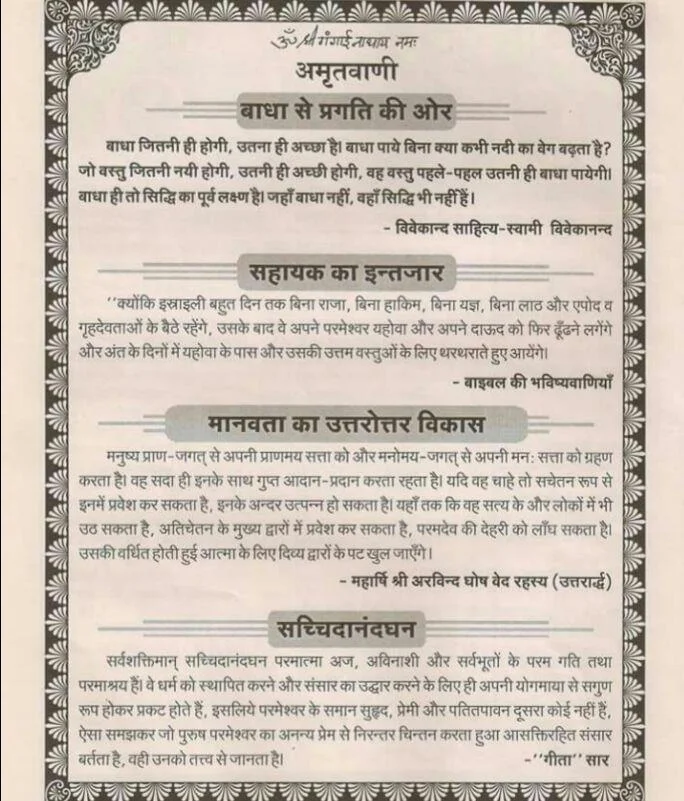 ॐ श्री गंगाईनाथाय नमः
अमृतवाणी
बाधा से प्रगति की ओर
बाधा जितनी ही होगी, उतना ही अच्छा है। बाधा पाये बिना क्या कभी नदी का वेग बढ़ता है?
जो वस्तु जितनी नयी होगी, उतनी ही अच्छी होगी, वह वस्तु पहले-पहल उतनी ही बाधा पायेगी।
बाधा ही तो सिद्धि का पूर्व लक्ष्ण है। जहाँ बाधा नहीं, वहाँ सिद्धि भी नहीं हैं।
- विवेकान्द साहित्य-स्वामी विवेकानन्द
सहायक का इन्तजार
''क्योंकि इस्राइली बहुत दिन तक बिना राजा, बिना हाकिम, बिना यज्ञ, बिना लाठ और एपोद व
गृहदेवताओं के बैठे रहेंगे, उसके बाद वे अपने परमेश्वर यहोवा और अपने दाऊद को फिर ढूँढने लगेंगे
और अंत के दिनों में यहोवा के पास और उसकी उत्तम वस्तुओं के लिए थरथराते हुए आयेंगे।
- बाइबल की भविष्यवाणियाँ
मानवता का उत्तरोत्तर विकास
मनुष्य प्राण-जगत् से अपनी प्राणमय सत्ता को और मनोमय-जगत् से अपनी मन: सत्ता को ग्रहण
करता है। वह सदा ही इनके साथ गुप्त आदान-प्रदान करता रहता है। यदि वह चाहे तो सचेतन रूप से
इनमें प्रवेश कर सकता है, इनके अन्दर उत्पन्न हो सकता है। यहाँ तक कि वह सत्य के और लोकों में भी
उठ सकता है, अतिचेतन के मुख्य द्वारों में प्रवेश कर सकता है, परमदेव की देहरी को लाँघ सकता है।
उसकी वर्धित होती हुई आत्मा के लिए दिव्य द्वारों के पट खुल जाएँगे।
- महार्षि श्री अरविन्द घोष वेद रहस्य (उत्तरार्द्ध)
सच्चिदानंदघन
सर्वशक्तिमान् सच्चिदानंदघन परमात्मा अज, अविनाशी और सर्वभूतों के परम गति तथा
परमाश्रय हैं। वे धर्म को स्थापित करने और संसार का उद्धार करने के लिए ही अपनी योगमाया से सगुण
रूप होकर प्रकट होते हैं, इसलिये परमेश्वर के समान सुहृद, प्रेमी और पतितपावन दूसरा कोई नहीं हैं,
ऐसा समझकर जो पुरुष परमेश्वर का अनन्य प्रेम से निरन्तर चिन्तन करता हुआ आसक्तिरहित संसार
बर्तता है, वही उनको तत्त्व से जानता है।   -''गीता'' सार